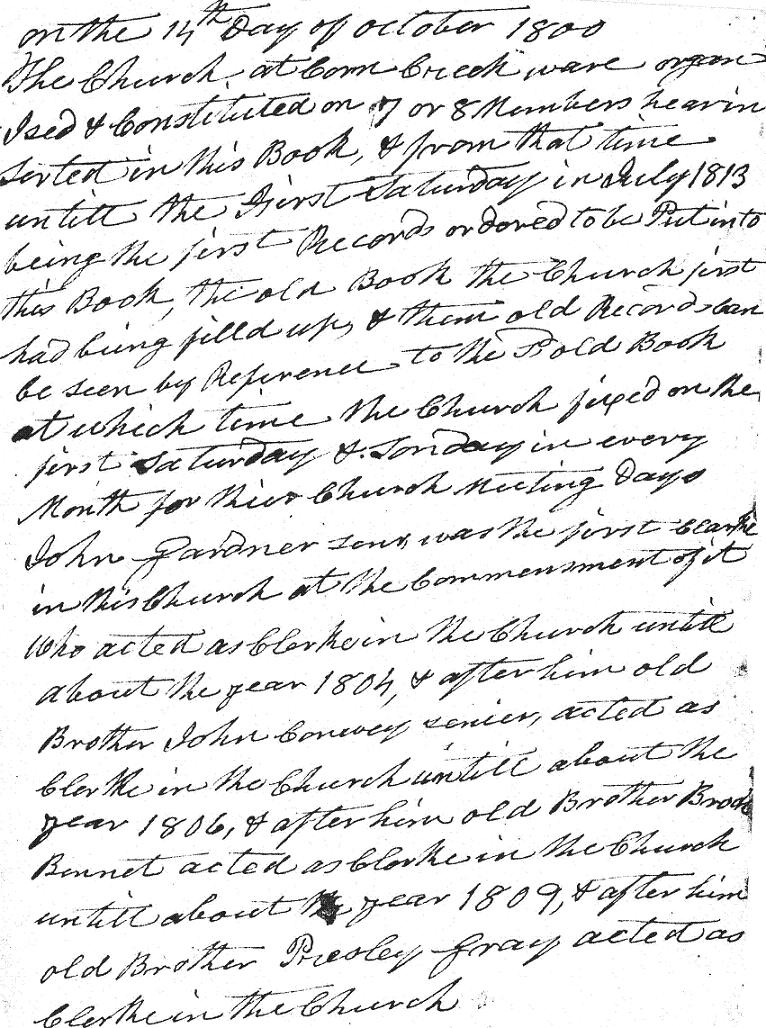 on the 14th Day of october 1800
The Church at Corn Creek ware organ
Ised & Constituted on 7 or 8 Members hearin
serted in this Book, & from that time
untill the First Saturday in July 1813
being the first Records ordored to be Put into
this Book, the old Book the Church first
had being filld up, & them old Records can
be seen by Referrence to the Sd old Book
at which time the Church fixed on the
first Saturday & Sonday in every
Month for thier Church Meeting Days
John Gardner senr, was the first Clarke
in this Church at the Commensment of it
Who acted as Clerke in the Church untill
about the year 1804, & after him old
Brother John Conwey senier, acted as
Clerke in the Church untill about the
year 1806, & after him old Brother
Bennet acted as Clerke in the Church
untill about the year 1809, & after him
old Brother Presley Gray acted as
Clerke in the Church